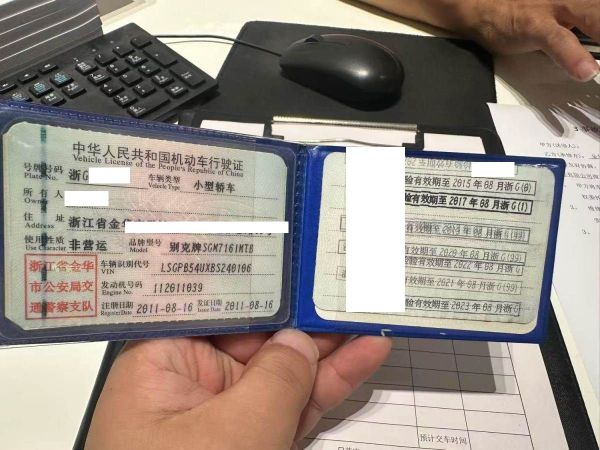 中华人民共和国机动车行驶证
Vehicle License of the People's Republic of China
号牌号码 浙G 车辆类型 小型轿车
Plate No. Vehicle Type
所有人
Owner
住址 浙江省金华
Address
使用性质 非营运 品牌型号 别克牌SGM7161MTB
Use Character Model
浙江省金华
市公安局交
通警察支队
车辆识别代号 LSGPB54UXBS240106
VIN
发动机号码 112611039
Engine No.
注册日期 2011-08-16 发证日期 2011-08-16
Register Date Issue Date
验有效期至2015年08月浙G(0)
验有效期至2017年08月浙G(1)
有效期至2019年08月浙G(99)
有效期至2020年08月浙G(99)
有效期至2022年08月浙G(99)
有效期至2021年08月浙G(99)
验有效期至2023年08月浙G
预计交车时间